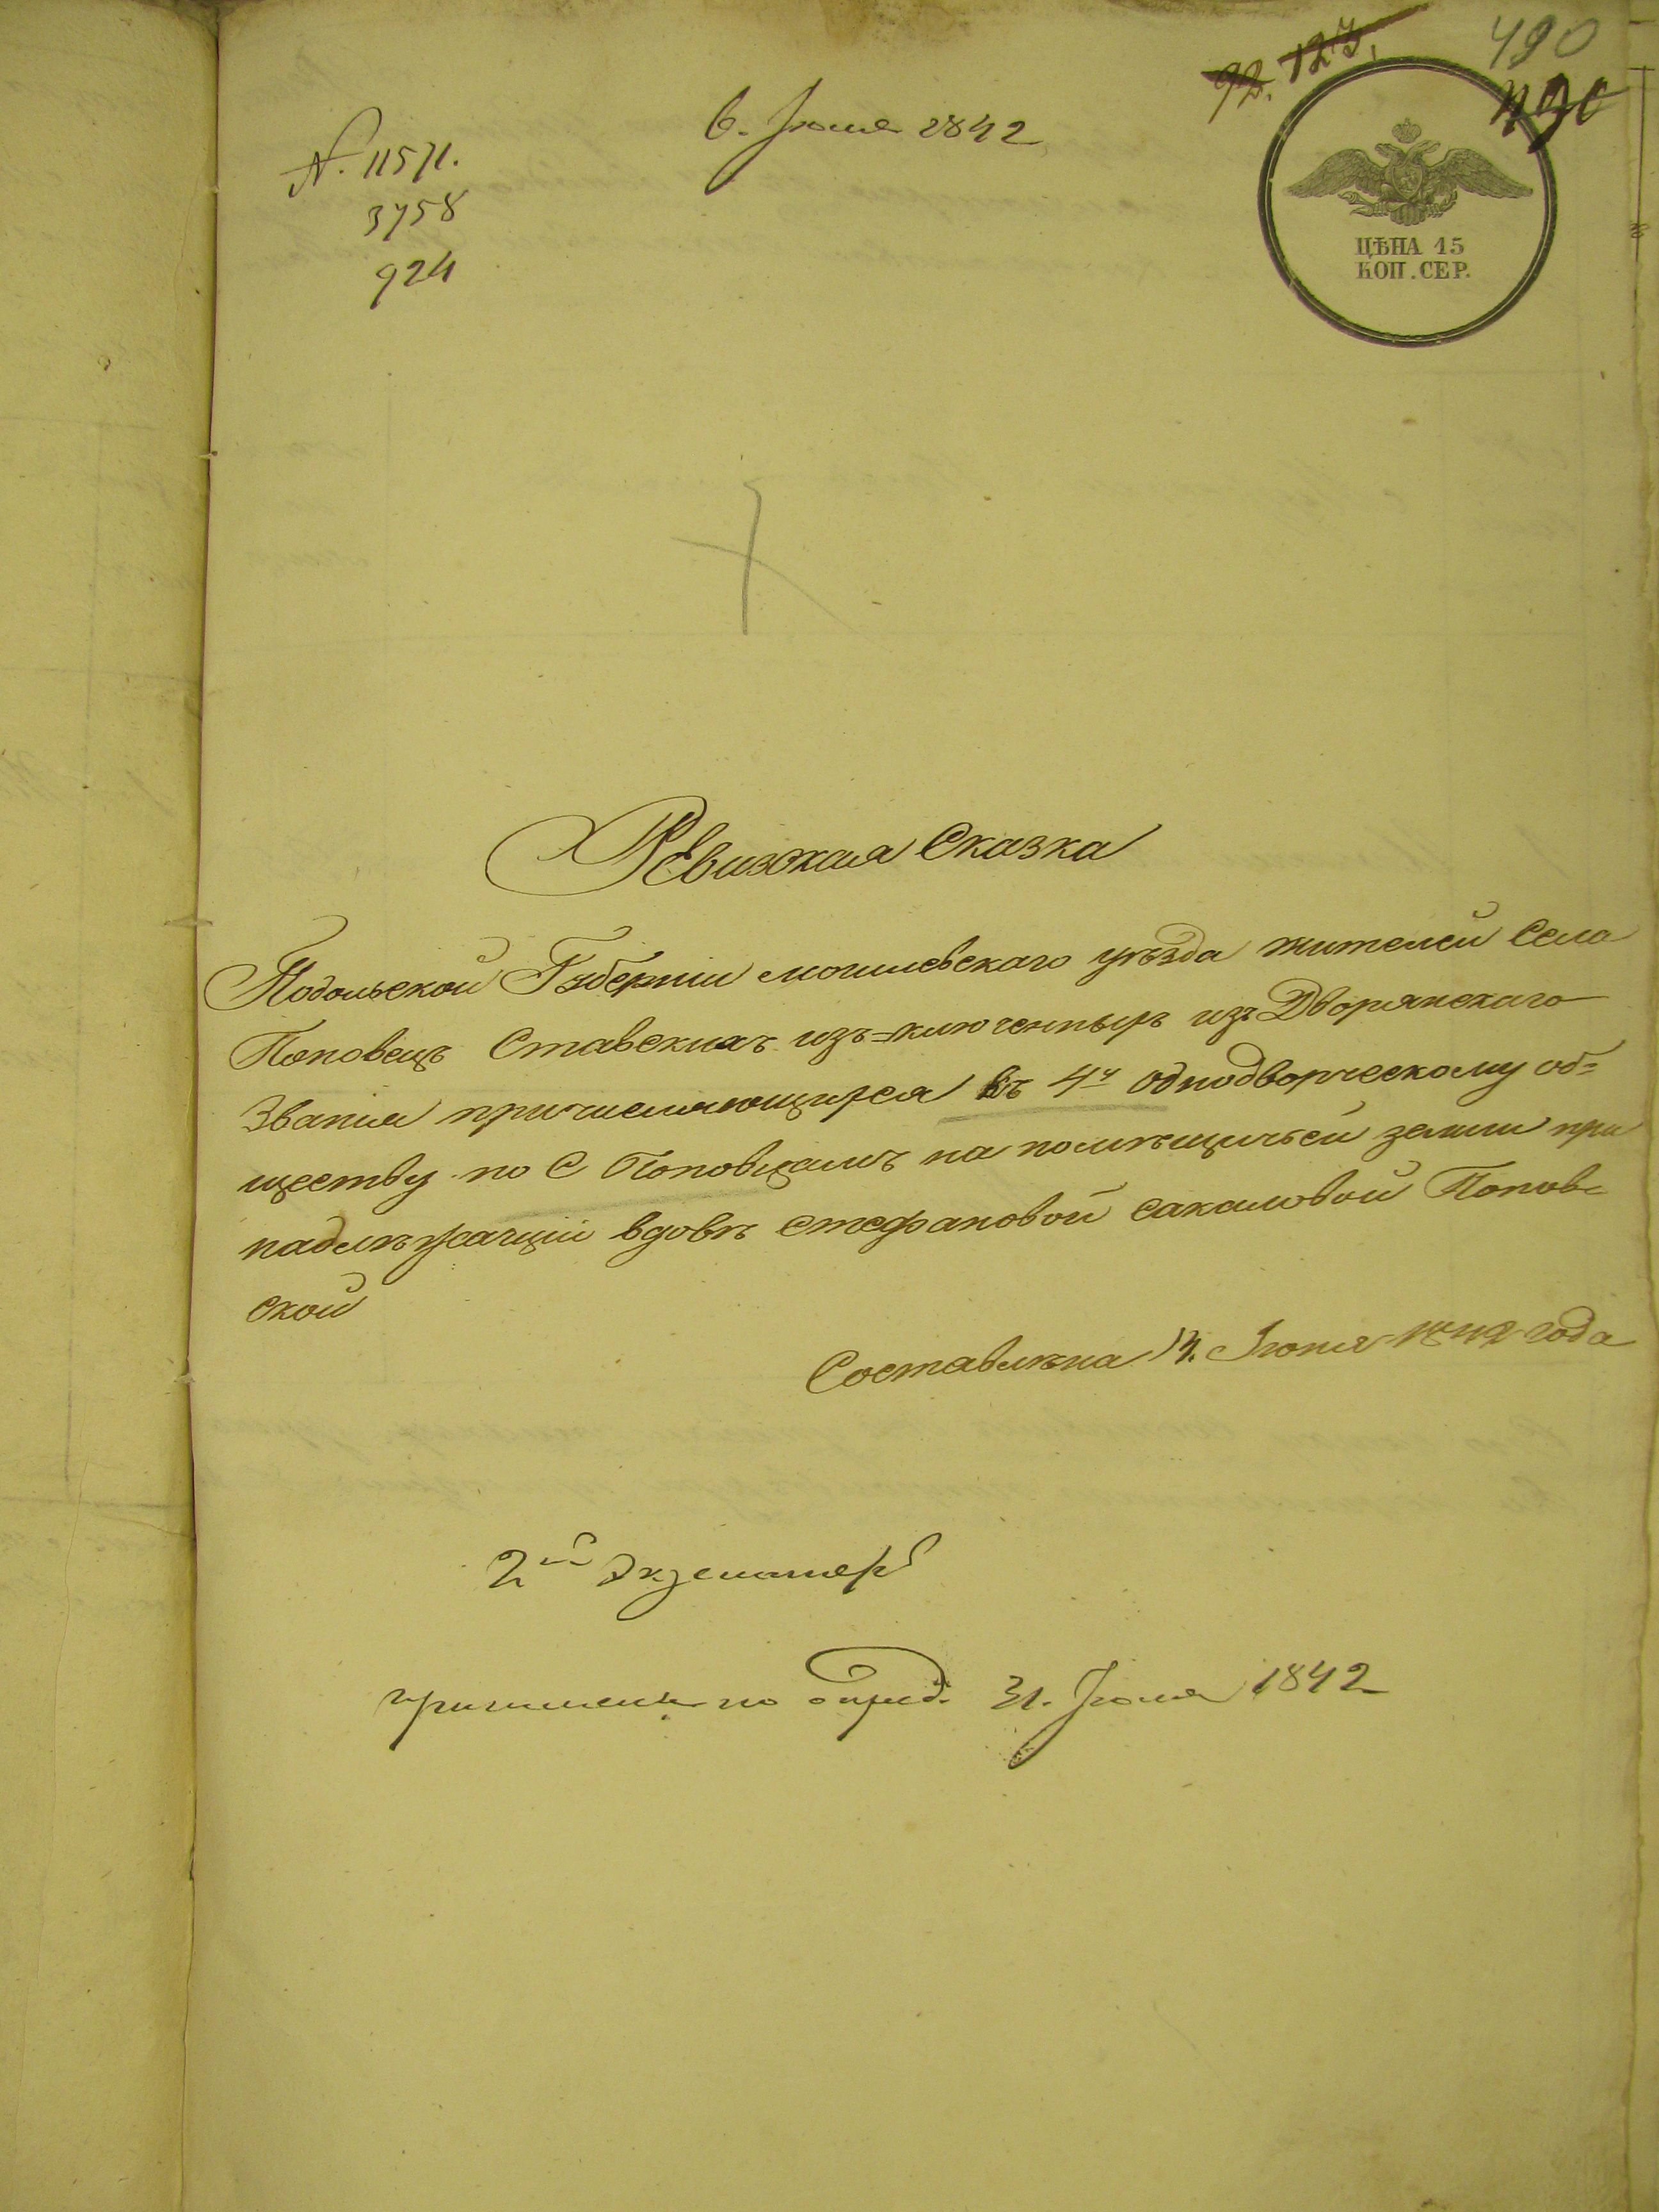 92. 123.
490
490
6. Июля 1842
N. 11571.
3758
924
ЦѢНА 15
КОП. СЕР.
Ревизкая Сказка
Подольской Губерніи могилевскаго уѣзда жителей Села
Поповецъ Ставскихъ изъ=ключенныхъ изъ Дворянскаго
Званія причисляющихся къ 4му однодворческому об=
ществу по С Поповцамъ на помѣщичьей земли при
надлѣжащій вдовѣ стефановой сакаловой Попов=
ской
Составлѣна 13. Іюня 1842 года
2й Экземпляръ
причислены по опред. 31. Июля 1842